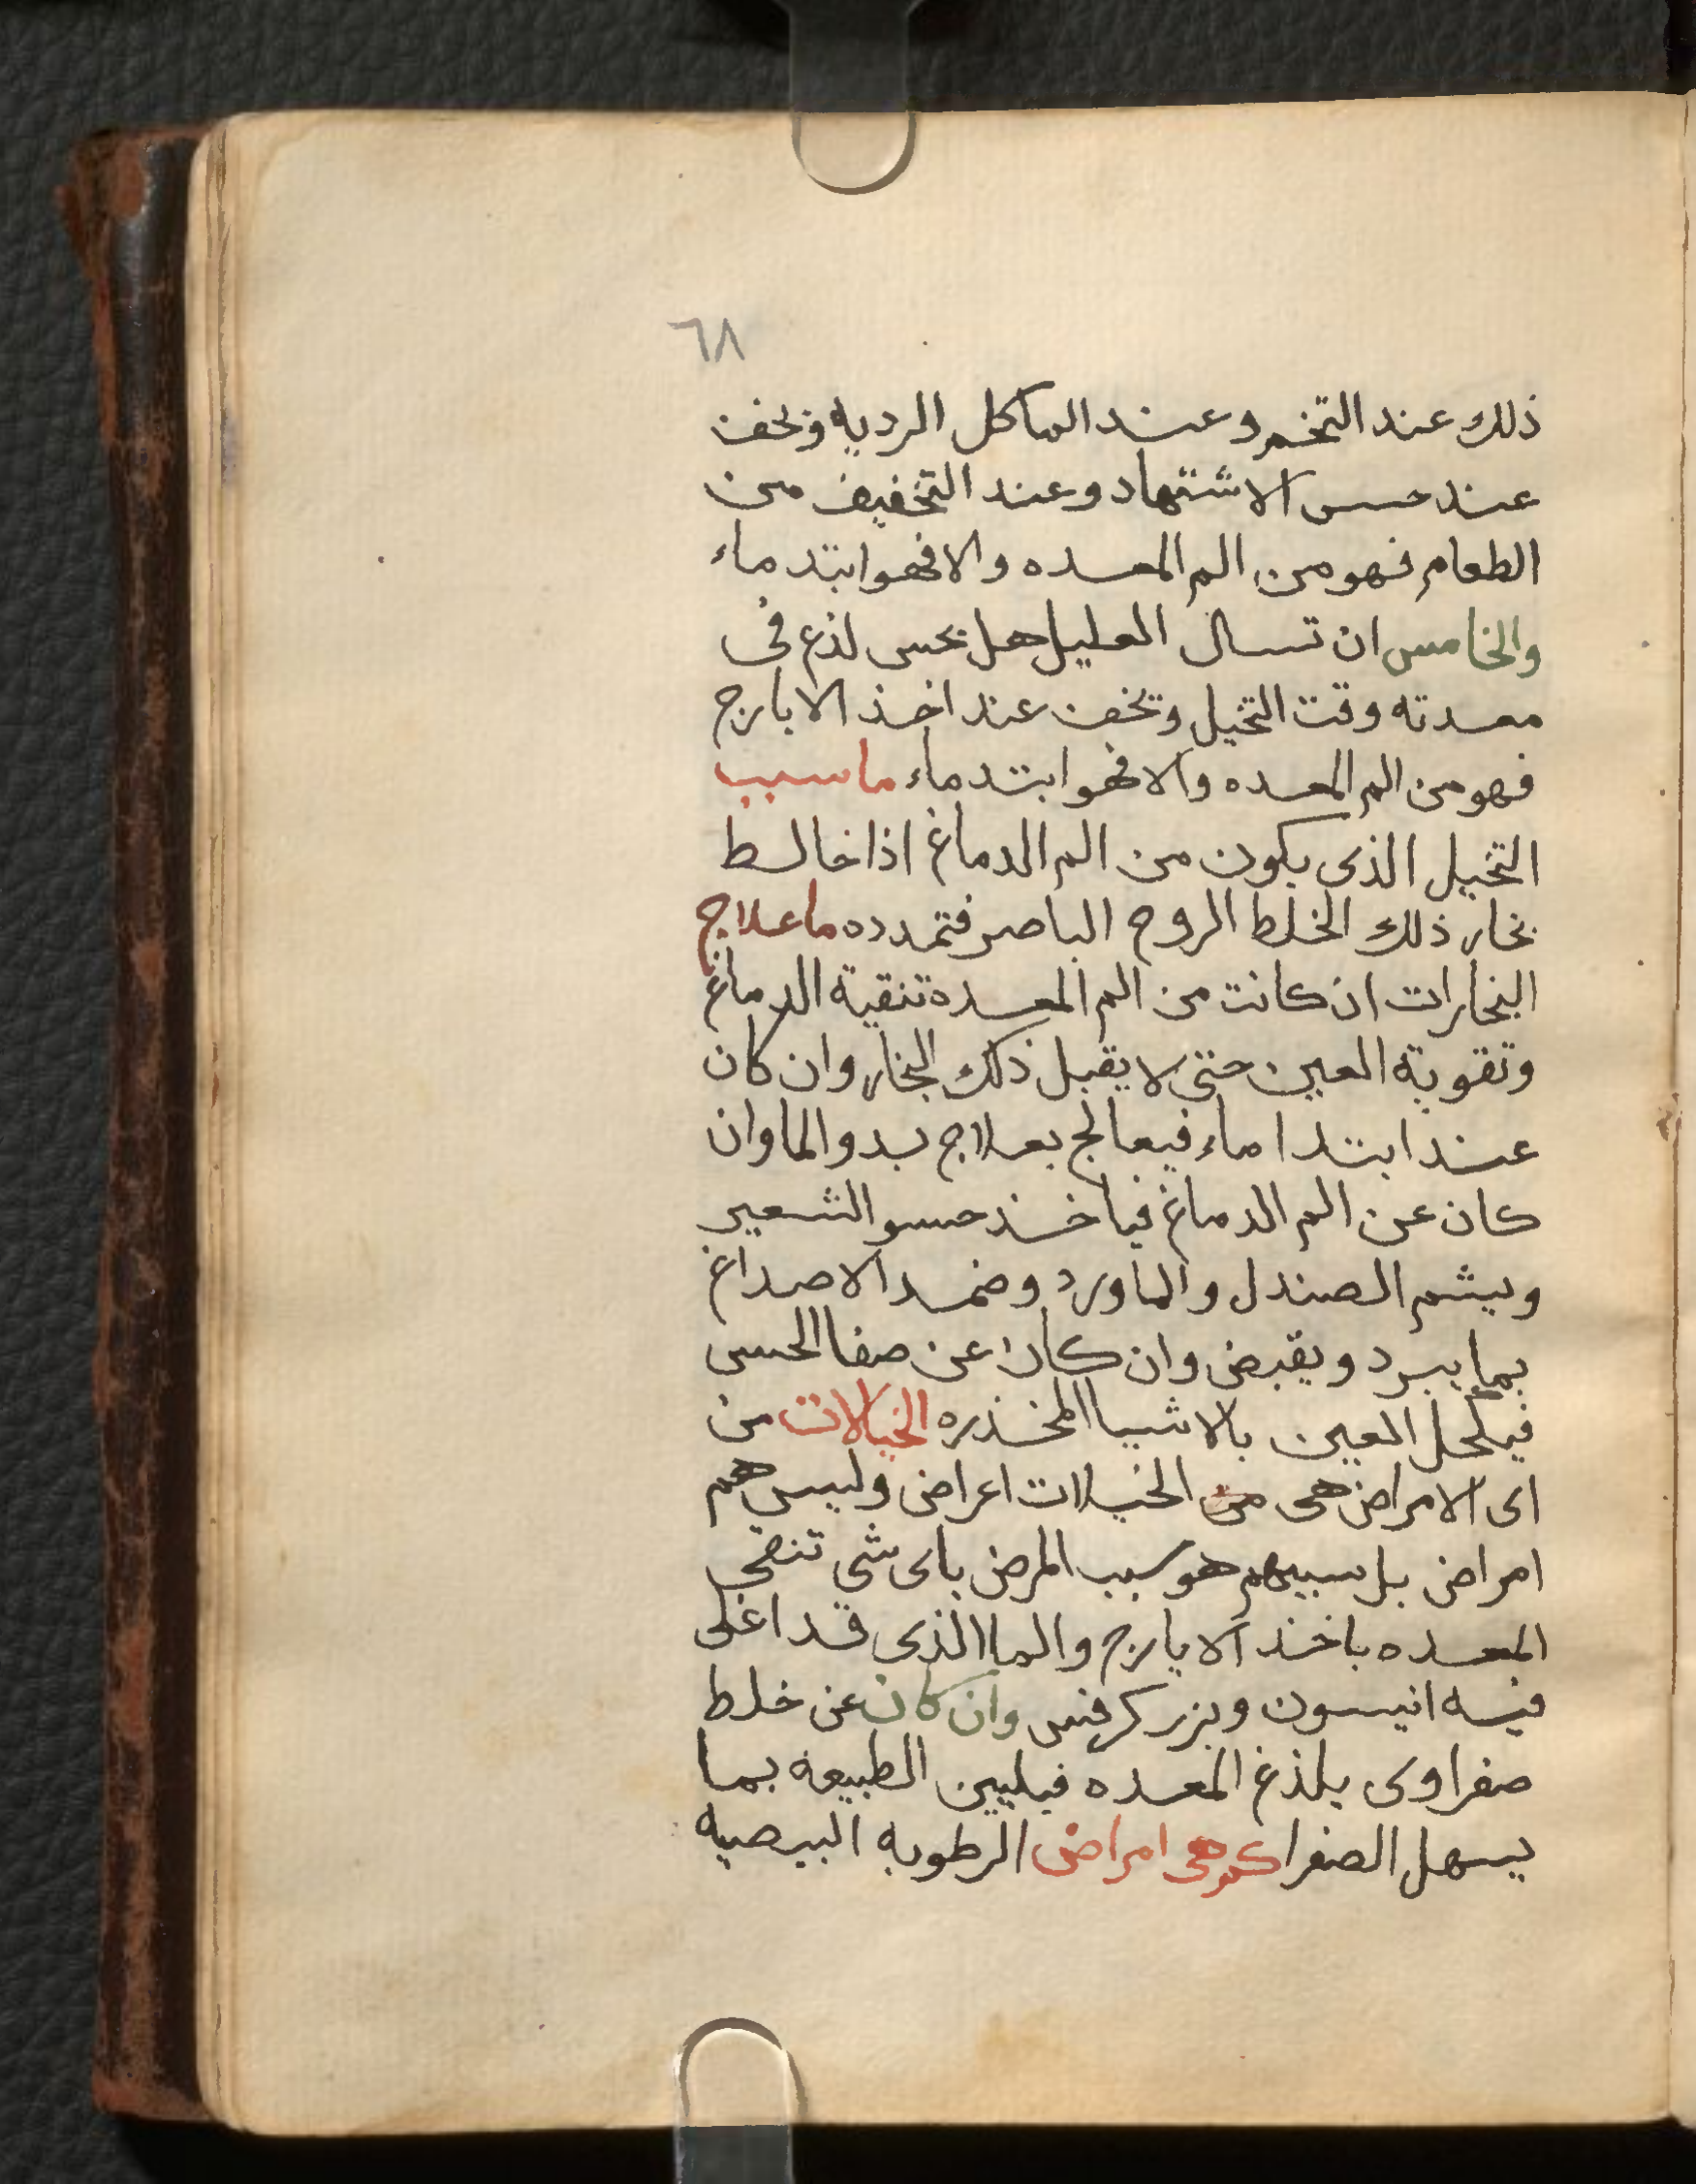 ٦٨
ذلك عند التخم وعند الماكل الرديه ويخف
عند حسن الاشتهاد وعند التخفيف من
الطعام فهو من الم المعده والا فهو ابتد ماء
والخامس ان تسال العليل هل يحس لذع فى
معدته وقت التخيل ويخف عند اخذ الايارج
فهو من الم المعده والا فهو ابتد ماء ما سبب
التخيل الذى يكون من الم الدماغ اذا خالط
بخار ذلك الخلط الروح الباصر فتمدده ما علاج
البخارات ان كانت من الم المعده تنقية الدماغ
وتقوية العين حتى لا يقبل ذلك البخار وان كان
عند ابتدا ماء فيعالج بعلاج بدو الما وان
كان عن الم الدماغ فياخذ حسو الشعير
ويشم الصندل والماورد وضمد الاصداغ
بما يبرد ويقبض وان كان عن صفا الحس
فيكحل العين بالاشيا المخذره الخيالات من
اى الامراض هى من الخيلات اعراض وليس هم
امراض بل سببهم هو سبب المرض باى شى تنقى
المعده باخذ الايارج والما الذى قد اغلى
فيه انيسون وبزر كرفس وان كان عن خلط
صفراوى يلذغ المعده فيليين الطبيعه بما
يسهل الصفرا كم هى امراض الرطوبه البيضيه